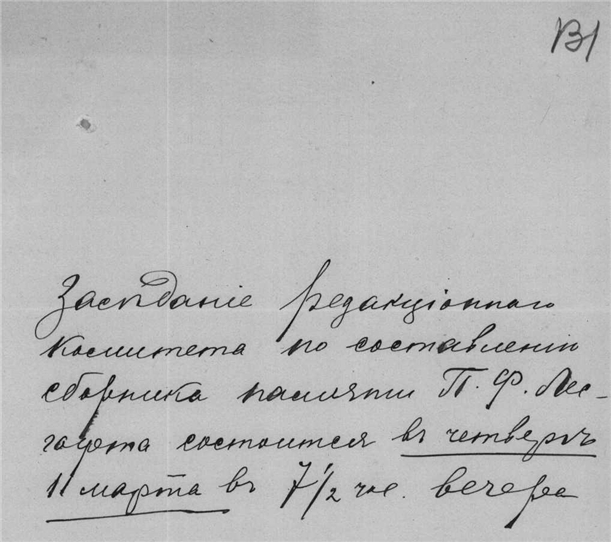 131
Засѣданіе редакціоннаго
комитета по составленію
сборника памяти П. Ф. Лес-
гафта состоится въ четвергъ
1 марта въ 7 1/2 час. вечера